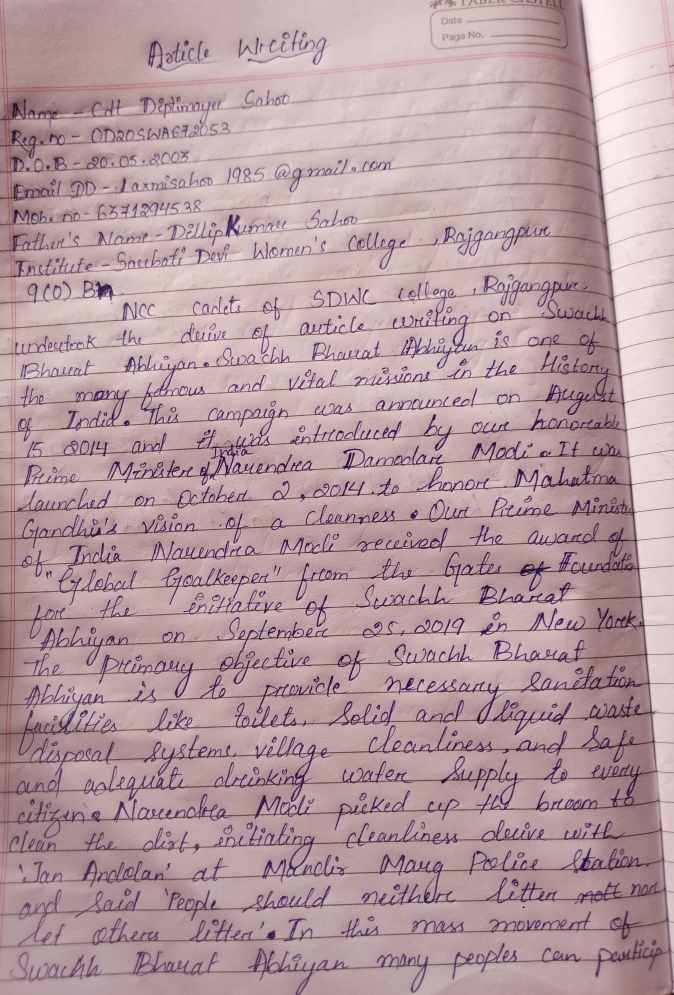 FABER CASTELL
Date
Page No.
Article Writing
Name - Cdt Diptimayee Sahoo
Reg. no - OD20SWA672053
D.O.B - 20.05.2003
Email ID - Laxmisahoo1985@gmail.com
Mob. no - 6371294538
Father's Name - Dillip Kumar Sahoo
Institute - Sarbati Devi Women's College, Rajgangpur
9(O) Bn
NCC cadets of SDWC College, Rajgangpur
undertook the drive of article writing on Swachh
Bharat Abhiyan. Swachh Bharat Abhiyan is one of
the many famous and vital missions in the History
of India. This campaign was announced on August
15 2014 and it was introduced by our honorable
Prime Minister of India Narendra Damodar Modi. It was
launched on October 2, 2014 to honor Mahatma
Gandhi's vision of a cleanness. Our Prime Ministe
of India Narendra Modi received the award of
"Global Goalkeeper" from the Gates of Foundatio
for the initiative of Swachh Bharat
Abhiyan on September 25, 2019 in New York.
The primary objective of Swachh Bharat
Abhiyan is to provide necessary sanitation
facilities like toilets, solid and liquid waste
disposal systems, village cleanliness, and safe
and adequate drinking water supply to every
citizen. Narendra Modi picked up the broom to
clean the dirt, initiating cleanliness drive with
'Jan Andolan' at Mandir Marg Police Station
and said 'People should neither litter nott nor
let others litter'. In this mass movement of
Swachh Bharat Abhiyan many peoples can particip